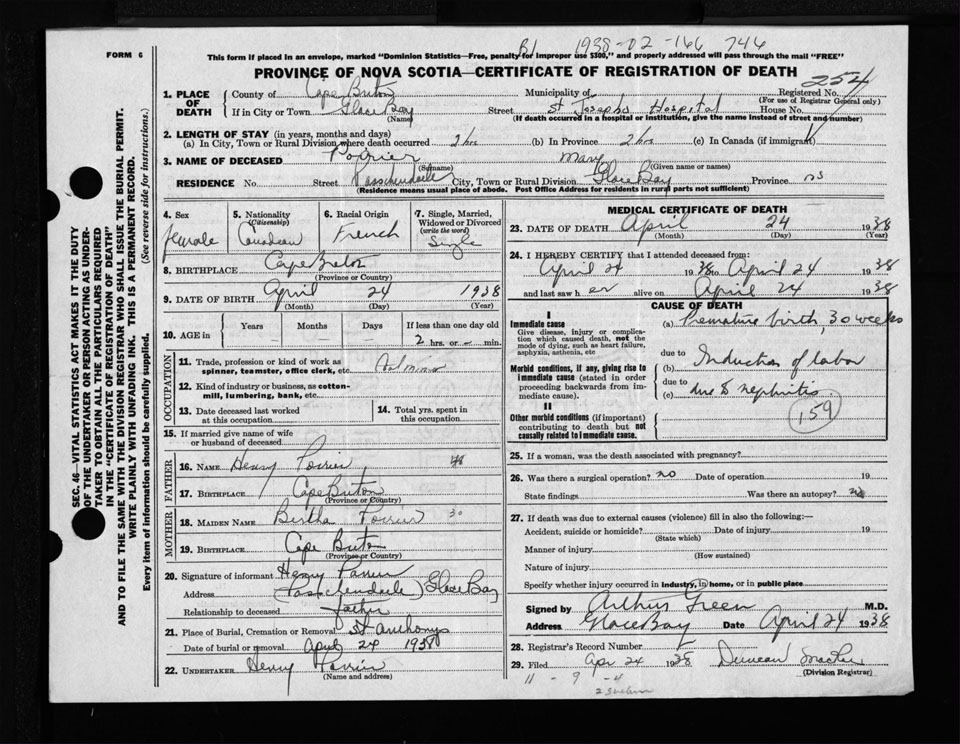 B1 1938-02-166 746
FORM 6
This form if placed in an envelope, marked "Dominion Statistics—Free, penalty for improper use $300," and properly addressed will pass through the mail "FREE"
PROVINCE OF NOVA SCOTIA—CERTIFICATE OF REGISTRATION OF DEATH
254
1. PLACE OF DEATH County of Cape Breton Municipality of Registered No.
(For use of Registrar General only)
If in City or Town Glace Bay Street St Josephs Hospital House No.
(Name) (If death occurred in a hospital or institution, give the name instead of street and number)
2. LENGTH OF STAY (in years, months and days)
(a) In City, Town or Rural Division where death occurred 2 hrs (b) In Province 2 hrs (c) In Canada (if immigrant)
3. NAME OF DECEASED Poirier Mary
(Surname) (Given name or names)
RESIDENCE No. Street Passchendaele City, Town or Rural Division Glace Bay Province NS
(Residence means usual place of abode. Post Office Address for residents in rural parts not sufficient)
4. Sex female
5. Nationality (Citizenship) Canadian
6. Racial Origin French
7. Single, Married, Widowed or Divorced (write the word) Single
8. BIRTHPLACE Cape Breton
(Province or Country)
9. DATE OF BIRTH April 24 1938
(Month) (Day) (Year)
10. AGE in Years Months Days If less than one day old
2 hrs. or — min.
OCCUPATION
11. Trade, profession or kind of work as spinner, teamster, office clerk, etc.
12. Kind of industry or business, as cotton-mill, lumbering, bank, etc.
13. Date deceased last worked at this occupation
14. Total yrs. spent in this occupation
15. If married give name of wife or husband of deceased
FATHER
16. NAME Henry Poirier
17. BIRTHPLACE Cape Breton
(Province or Country)
MOTHER
18. MAIDEN NAME Bertha Poirier 30
19. BIRTHPLACE Cape Breton
(Province or Country)
20. Signature of informant Henry Poirier
Address (Passchendaele) Glace Bay
Relationship to deceased father
21. Place of Burial, Cremation or Removal St Anthonys
Date of burial or removal April 24 1938
22. UNDERTAKER Henry Poirier
(Name and address)
MEDICAL CERTIFICATE OF DEATH
23. DATE OF DEATH April 24 1938
(Month) (Day) (Year)
24. I HEREBY CERTIFY that I attended deceased from:
April 24 1938 to April 24 1938
and last saw her alive on April 24 1938
CAUSE OF DEATH
I
Immediate cause (a) Premature birth, 30 weeks
Give disease, injury or complication which caused death, not the mode of dying, such as heart failure, asphyxia, asthenia, etc
due to
(b) Induction of labor
Morbid conditions, if any, giving rise to immediate cause (stated in order proceeding backwards from immediate cause).
due to
(c) due to nephritis
159
II
Other morbid conditions (if important) contributing to death but not causally related to immediate cause.
25. If a woman, was the death associated with pregnancy?
26. Was there a surgical operation? no Date of operation 19
State findings Was there an autopsy? no
27. If death was due to external causes (violence) fill in also the following:—
Accident, suicide or homicide? Date of injury 19
(State which)
Manner of injury
(How sustained)
Nature of injury
Specify whether injury occurred in industry, in home, or in public place
Signed by Arthur Green M.D.
Address Glace Bay Date April 24 1938
28. Registrar's Record Number
29. Filed Apr 24 1938 Duncan
(Division Registrar)
11 - 9 - 4
SEC. 46—VITAL STATISTICS ACT MAKES IT THE DUTY
OF THE UNDERTAKER OR PERSON ACTING AS UNDER-
TAKER TO OBTAIN ALL THE PARTICULARS REQUIRED
IN THE "CERTIFICATE OF REGISTRATION OF DEATH"
AND TO FILE THE SAME WITH THE DIVISION REGISTRAR WHO SHALL ISSUE THE BURIAL PERMIT.
WRITE PLAINLY WITH UNFADING INK. THIS IS A PERMANENT RECORD.
Every item of information should be carefully supplied. (See reverse side for instructions.)